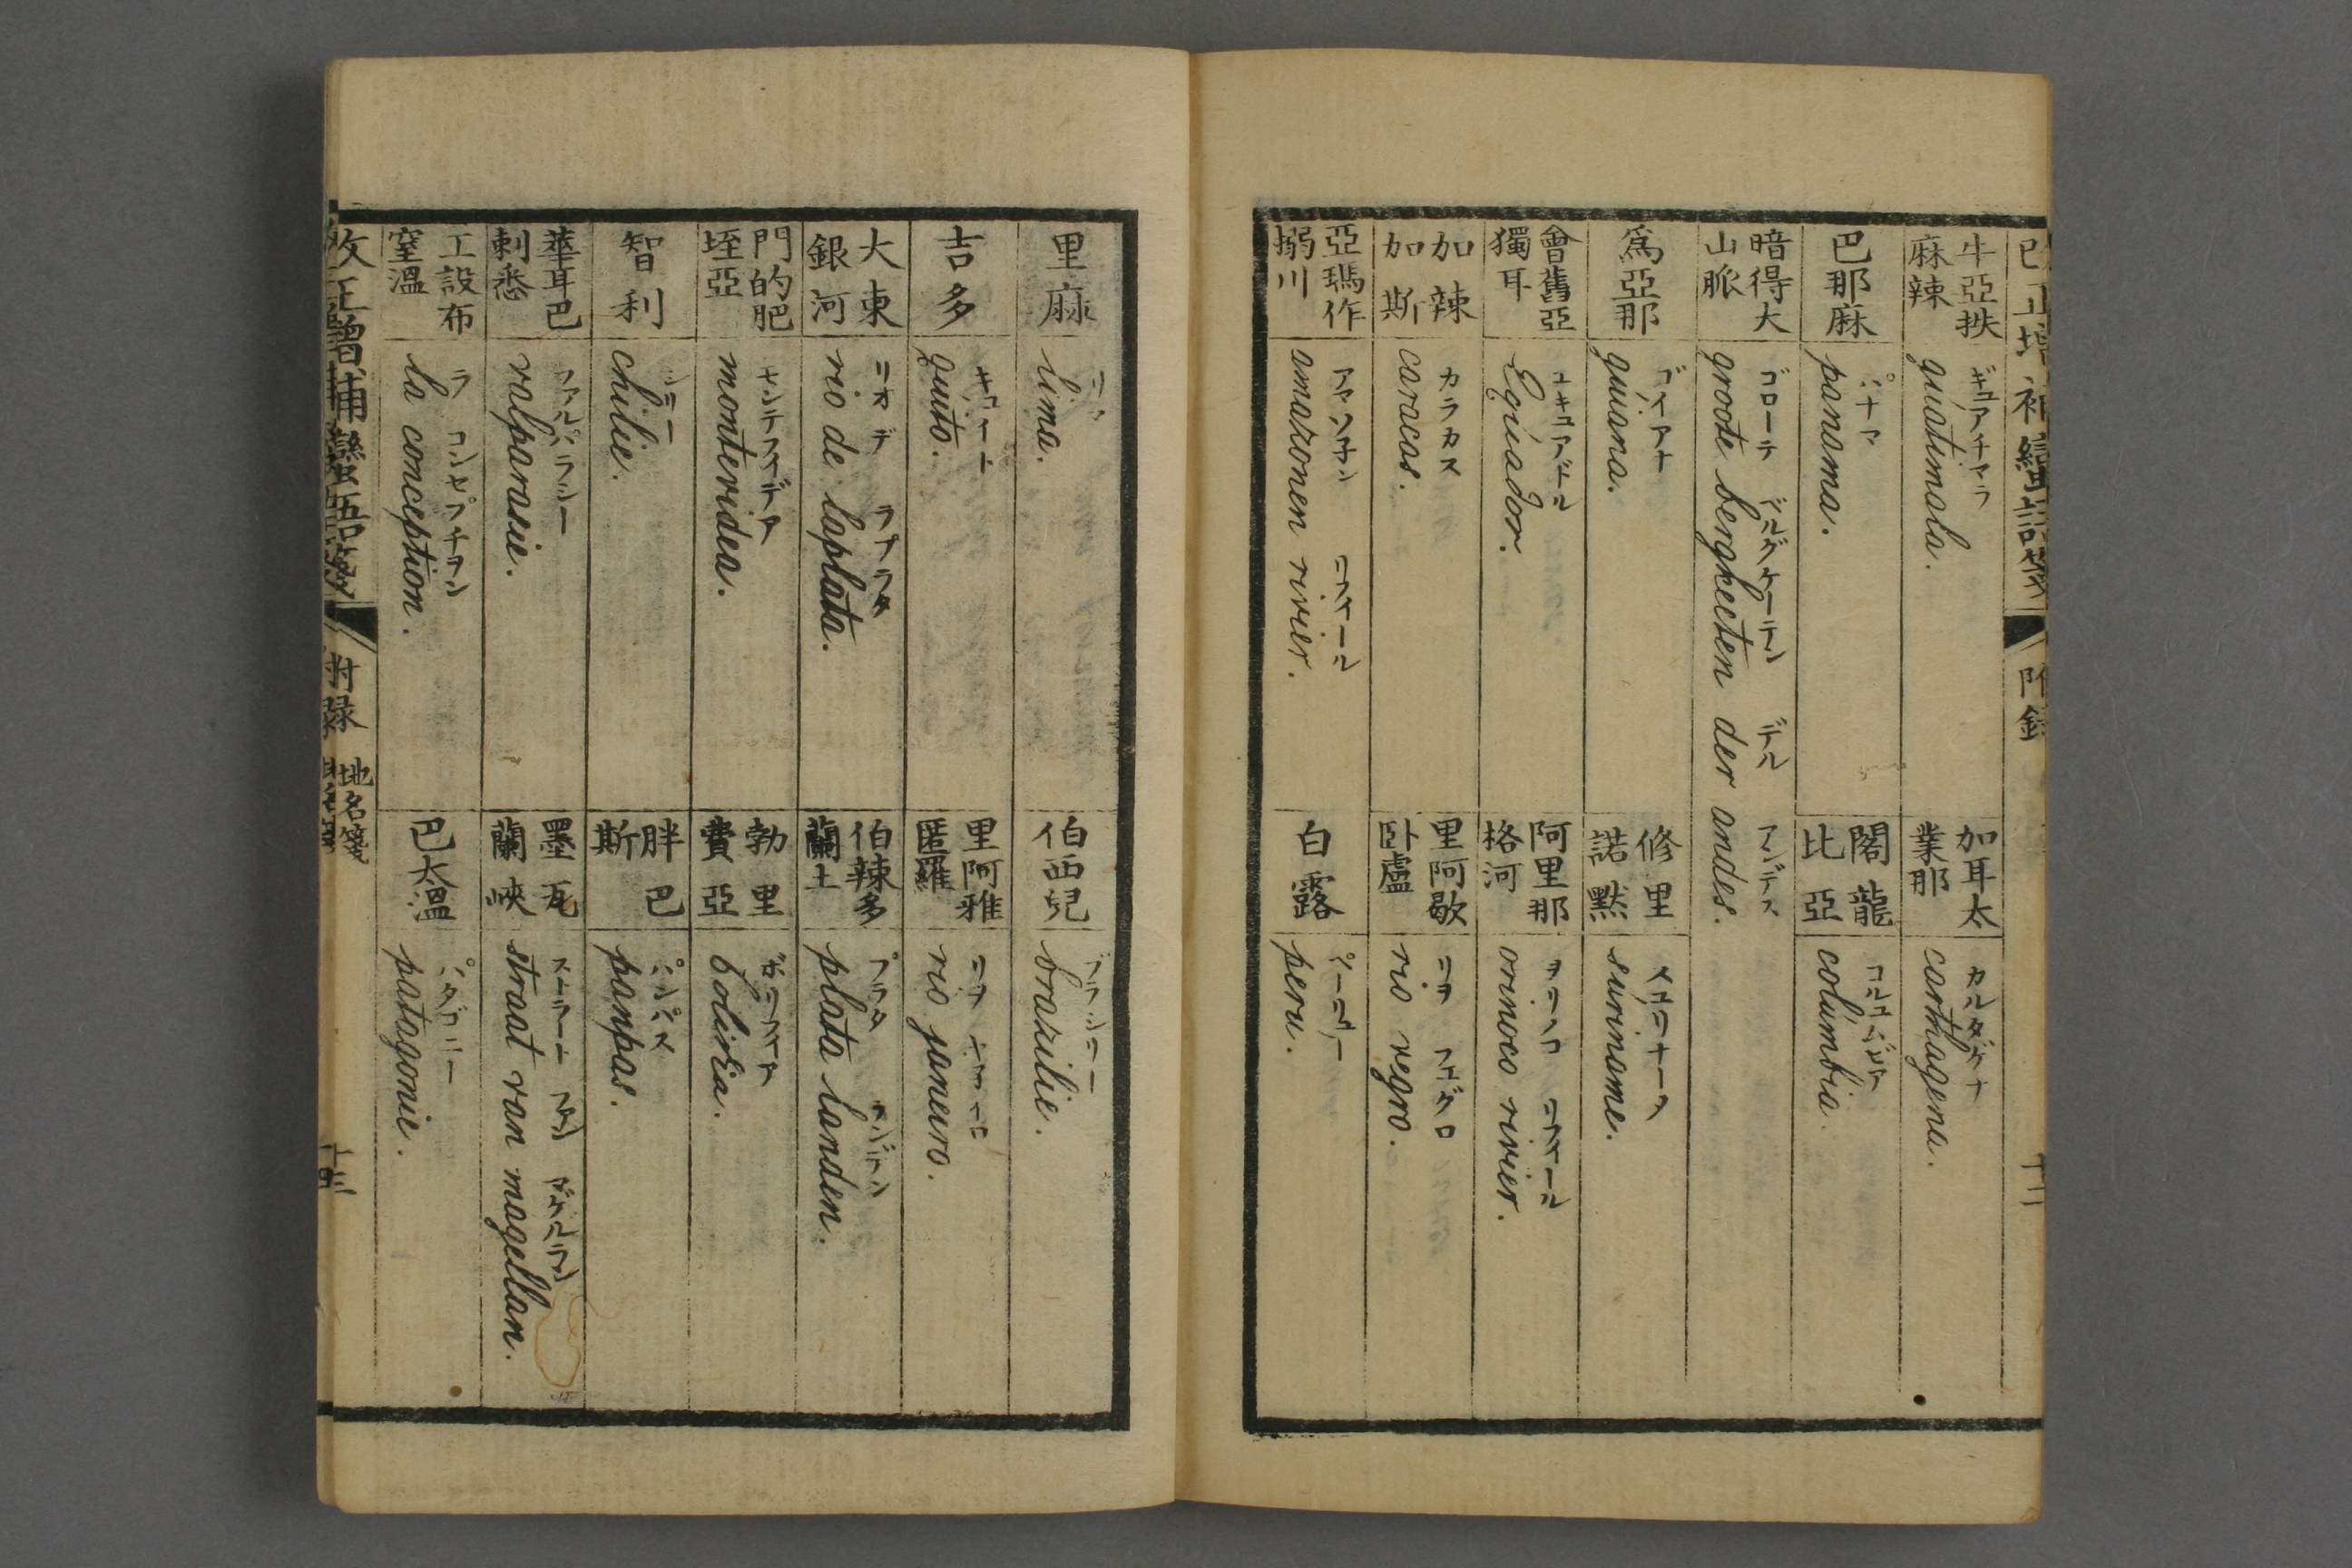 改正増補蠻語箋
附録
十二
牛亞挾
麻辣
ギュアチマラ
guatimala.
加耳太
業那
カルタゲナ
carthagena.
巴那麻
パナマ
panama.
閣龍
比亞
コルユムビア
columbia.
暗得大
山脈
ゴローテ ベルグケーテン デル アンデス
groote bergkeeten der andes.
爲亞那
ゴイアナ
guiana.
修里
諾黙
スユリナーメ
suriname.
會舊亞
獨耳
エキュアドル
Equador.
阿里那
格河
ヲリノコ リフィール
orinoco rivier.
加辣
加斯
カラカス
caracas.
里阿歇
卧盧
リヲ フエグロ
rio negro.
亞瑪作
搦川
アマソネン リフィール
amazonen rivier.
白露
ペーリュー
peru.
里麻
リマ
lima.
伯西兒
ブラシリー
brazilie.
吉多
キュイート
quito.
里阿雅
匿羅
rio janeiro.
大東
銀河
リオ デ ラプラタ
rio de laplata.
伯辣多
蘭土
プラタ ランデン
plata landen.
門的肥
垤亞
モンテフィデア
montevidea.
勃里
費亞
ボリフィア
bolivia.
智利
シリー
chilie.
胖巴
斯
パンパス
panpas.
華耳巴
剌悉
ファルパラシー
valparasie.
墨瓦
蘭峽
ストラート ファン マゲルラン
straat van magellan.
工設布
窒溫
ラ コンセプチヲン
la conception.
巴太溫
パタゴニー
patagonie.
改正增補蠻語箋
附録 地名箋
十三